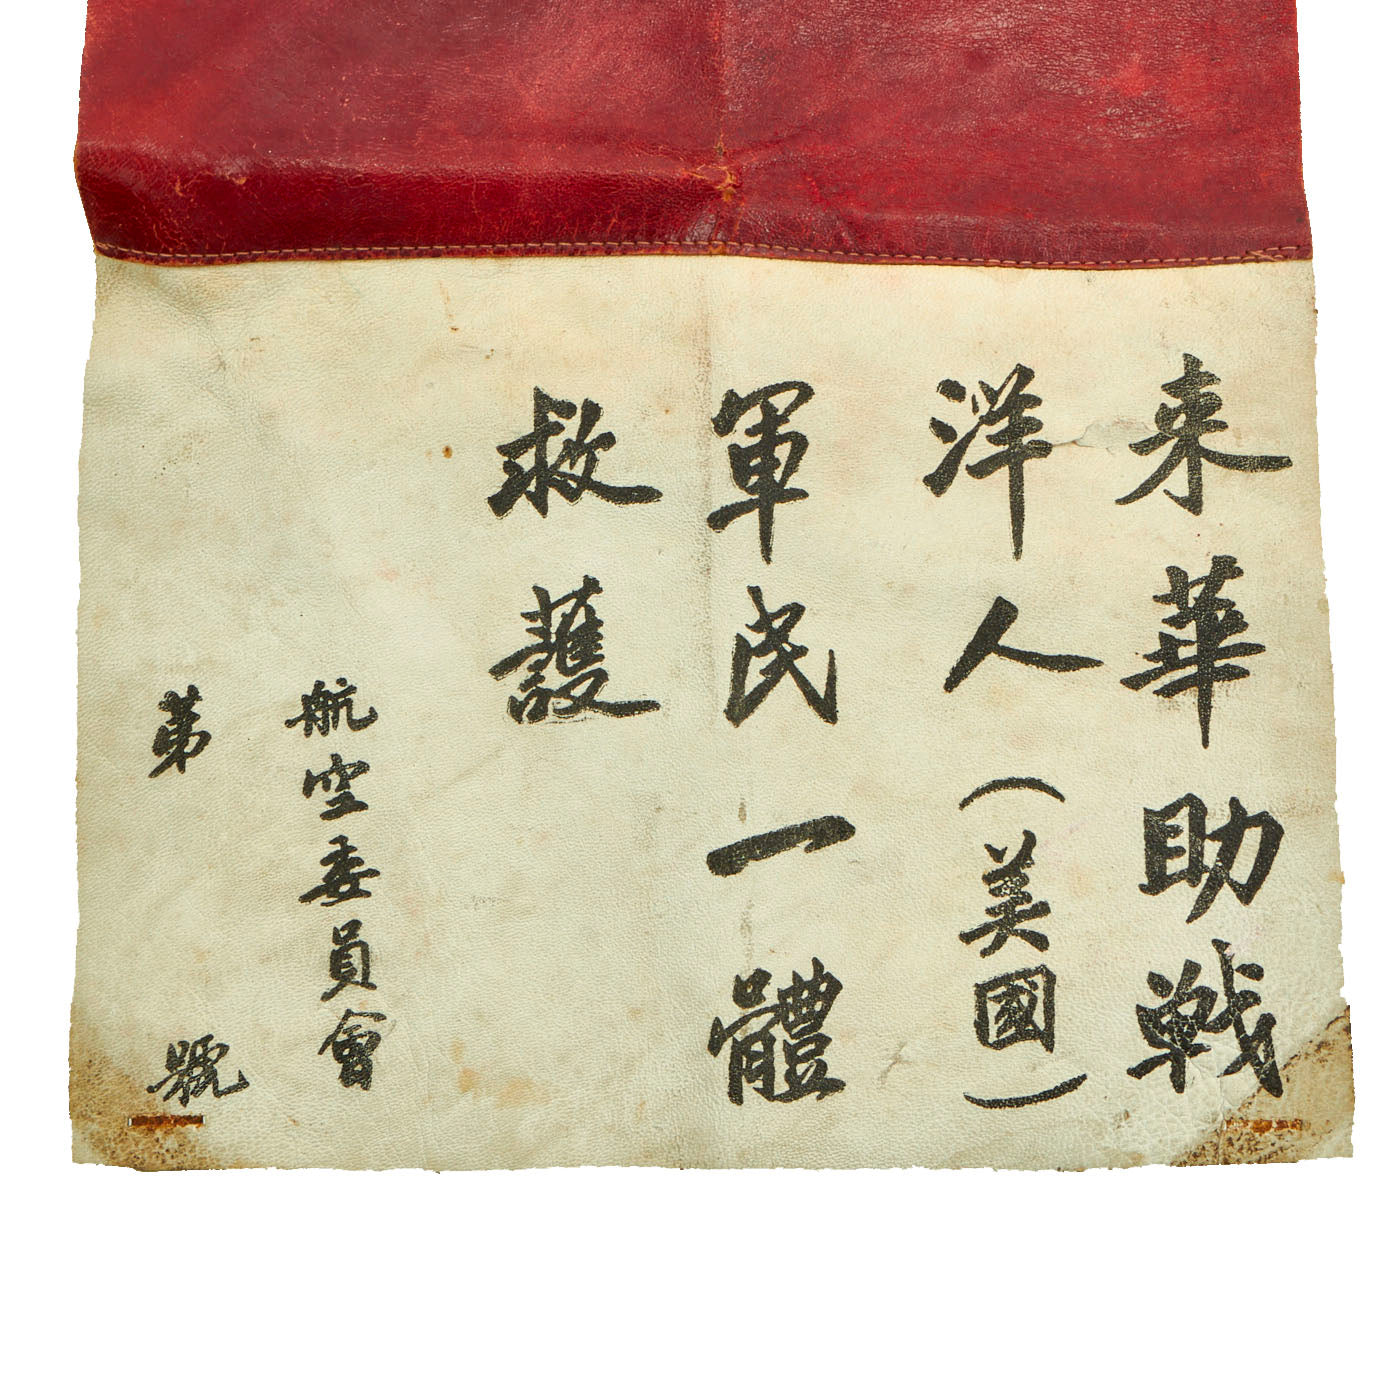 来華助戰
洋人（美國）
軍民一體
救護
航空委員會
第　號